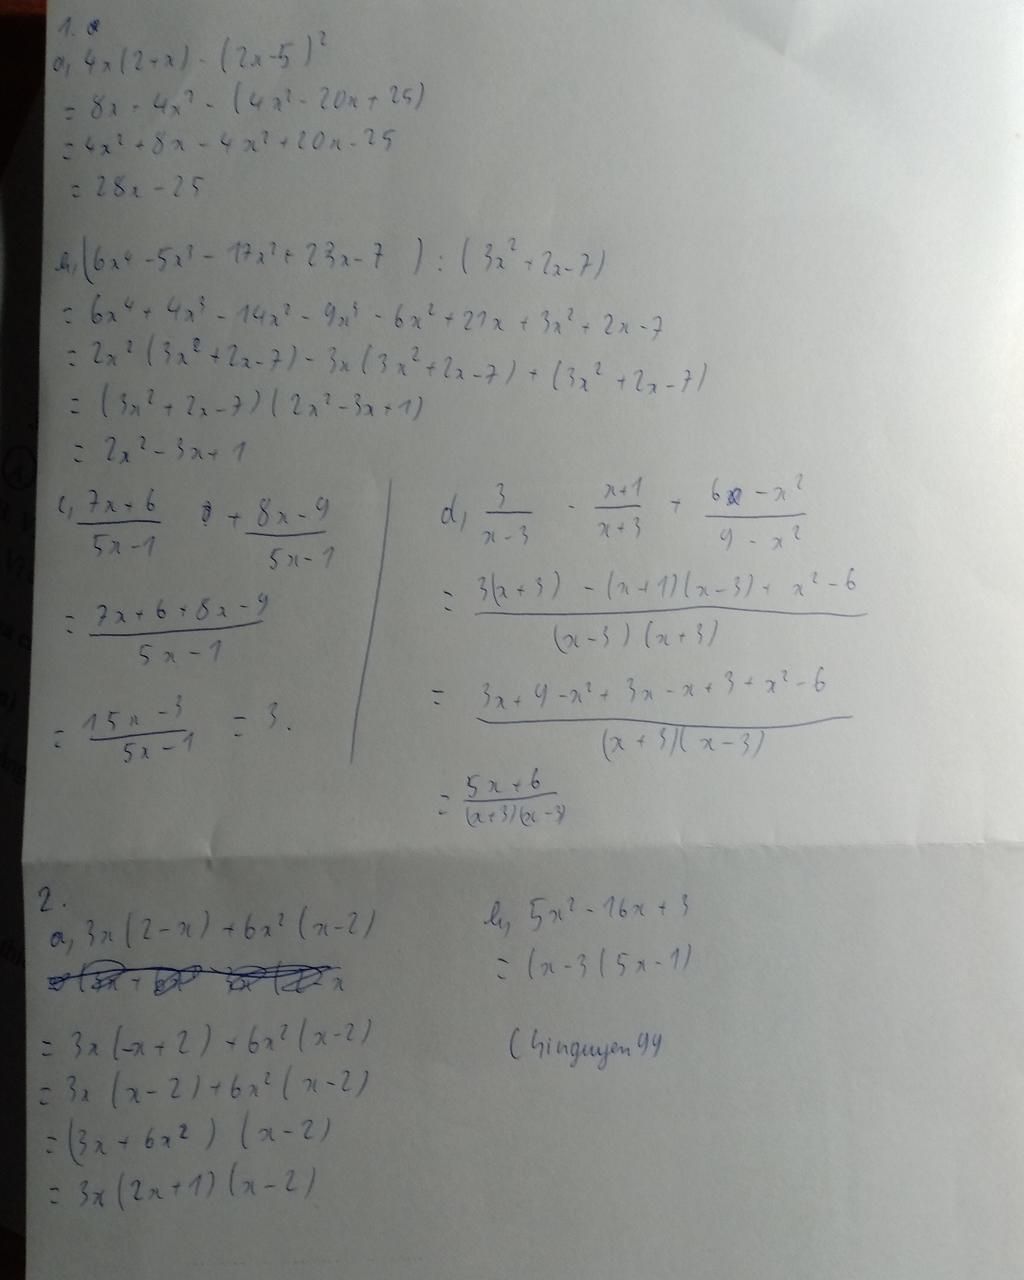 1.
a, 4x(2+x) - (2x-5)²
= 8x + 4x² - (4x² - 20x + 25)
= 4x² + 8x - 4x² + 20x - 25
= 28x - 25
b, (6x⁴ - 5x³ - 17x² + 23x - 7) : (3x² + 2x - 7)
= 6x⁴ + 4x³ - 14x² - 9x³ - 6x² + 21x + 3x² + 2x - 7
= 2x²(3x² + 2x - 7) - 3x(3x² + 2x - 7) + (3x² + 2x - 7)
= (3x² + 2x - 7)(2x² - 3x + 1)
= 2x² - 3x + 1
c, (7x + 6)/(5x - 1) + (8x - 9)/(5x - 1)
= (7x + 6 + 8x - 9)/(5x - 1)
= (15x - 3)/(5x - 1) = 3.
d, 3/(x - 3) - (x+1)/(x+3) + (6 - x²)/(9 - x²)
= (3(x+3) - (x+1)(x-3) + x² - 6)/((x-3)(x+3))
= (3x + 9 - x² + 3x - x + 3 + x² - 6)/((x+3)(x-3))
= (5x + 6)/((x+3)(x-3))
2.
a, 3x(2-x) + 6x²(x-2)
= 3x(-x+2) + 6x²(x-2)
= 3x(x-2) + 6x²(x-2)
= (3x + 6x²)(x-2)
= 3x(2x+1)(x-2)
b, 5x² - 16x + 3
= (x-3(5x-1)
Chinguyen99